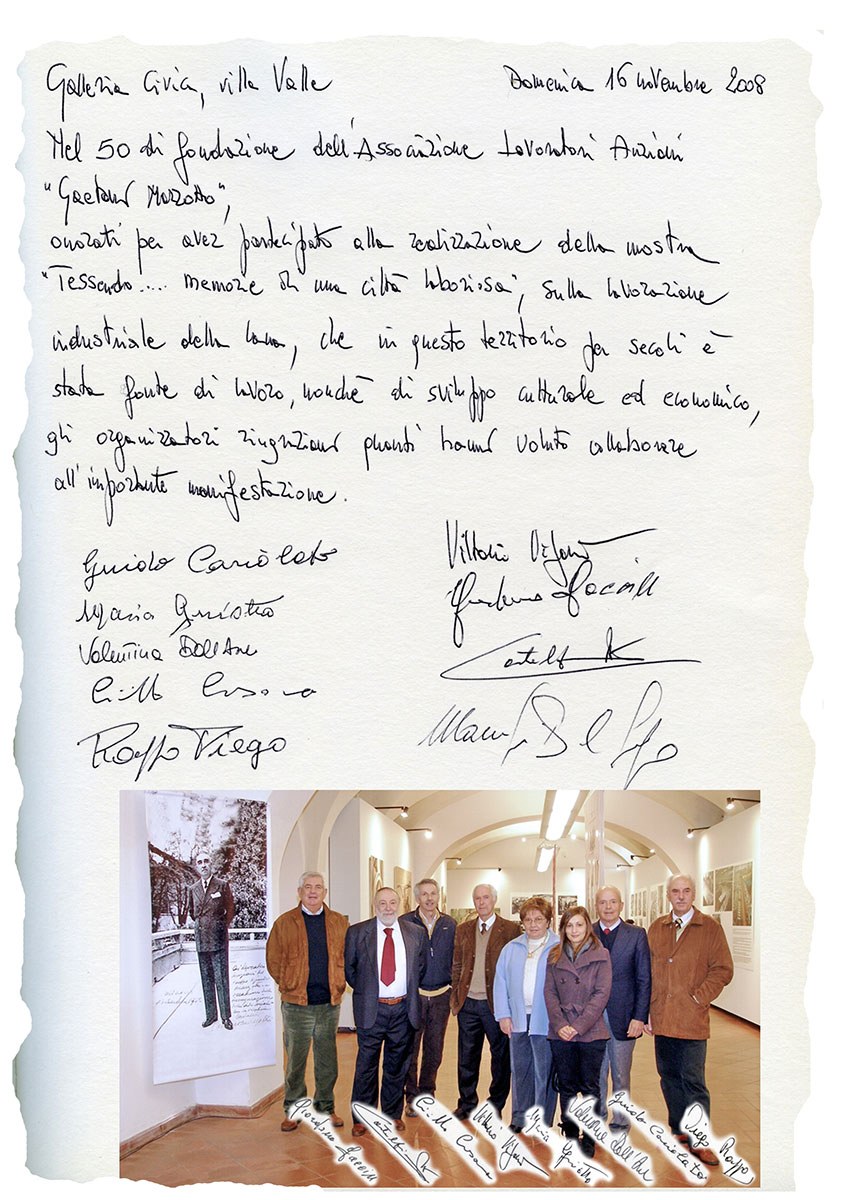 Galleria Civica, villa Valle
Domenica 16 novembre 2008
Nel 50 di fondazione dell'Associazione Lavoratori Anziani
"Gaetano Marzotto",
onorati per aver partecipato alla realizzazione della mostra
"Tessendo..... memorie di una città laboriosa", sulla lavorazione
industriale della lana, che in questo territorio per secoli è
stata fonte di lavoro, nonchè di sviluppo culturale ed economico,
gli organizzatori ringraziano quanti hanno voluto collaborare
all'importante manifestazione.
Guido Cariolato
Vittorio
Maria
Valentina Dall'Ara
Cirillo
Roffo Diego
Dal
Cirillo
Vittorio
Maria
Valentina Dall'Ara
Guido Cariolato
Diego Roffo